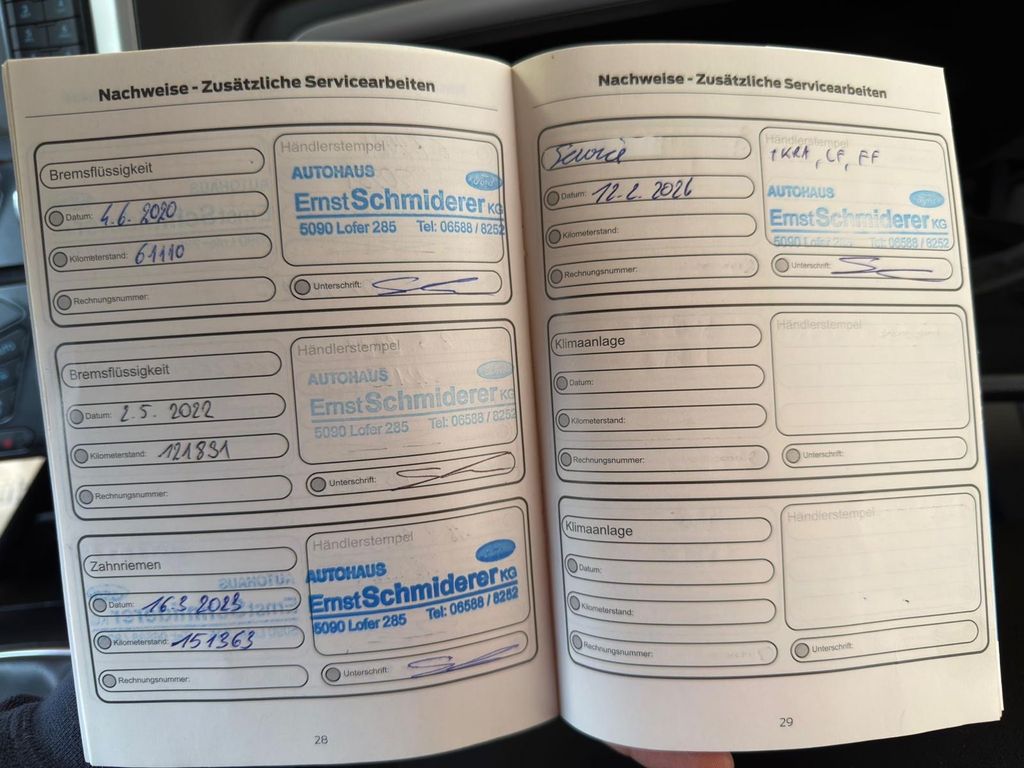 Nachweise - Zusätzliche Servicearbeiten
Bremsflüssigkeit
Datum: 4.6. 2020
Kilometerstand: 61110
Rechnungsnummer:
Händlerstempel
AUTOHAUS
Ford
Ernst Schmiderer KG
5090 Lofer 285 Tel: 06588 / 8252
Unterschrift:
Bremsflüssigkeit
Datum: 2.5. 2022
Kilometerstand: 121831
Rechnungsnummer:
Händlerstempel
AUTOHAUS
Ernst Schmiderer KG
5090 Lofer 285 Tel: 06588 / 8252
Unterschrift:
Zahnriemen
Datum: 16.3. 2023
Kilometerstand: 151363
Rechnungsnummer:
Händlerstempel
AUTOHAUS
Ernst Schmiderer KG
5090 Lofer 285 Tel: 06588 / 8252
Unterschrift:
28
Nachweise - Zusätzliche Servicearbeiten
Datum: 12.2. 2026
Kilometerstand:
Rechnungsnummer:
Händlerstempel
1KRA, LF, FF
AUTOHAUS
Ernst Schmiderer KG
5090 Lofer 285 Tel: 06588 / 8252
Unterschrift:
Klimaanlage
Datum:
Kilometerstand:
Rechnungsnummer:
Händlerstempel
Unterschrift:
Klimaanlage
Datum:
Kilometerstand:
Rechnungsnummer:
Händlerstempel
Unterschrift:
29